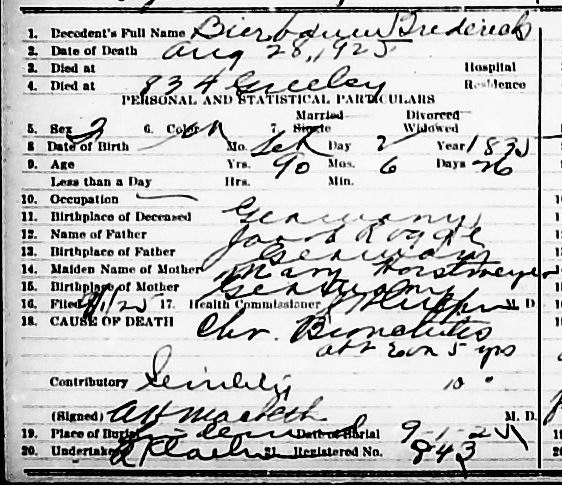 1. Decedent's Full Name Bierbaum Frederick
2. Date of Death Aug 28, 1925
3. Died at Hospital
4. Died at 834 Greeley Residence
PERSONAL AND STATISTICAL PARTICULARS
Married Divorced
5. Sex 6. Color W 7. Single Widowed
8 Date of Birth Mo. Feb Day 2 Year 1835
9. Age Yrs. 90 Mos. 6 Days 26
Less than a Day Hrs. Min.
10. Occupation —
11. Birthplace of Deceased Germany
12. Name of Father Jacob
13. Birthplace of Father Germany
14. Maiden Name of Mother Mary Horstmeyer
15. Birthplace of Mother Germany
16. Filed 9/1/25 17. Health Commissioner M. D.
18. CAUSE OF DEATH Chr. Bronchitis
abt 5 yrs
Contributory Senility 10 "
(Signed) M. D.
19. Place of Burial Date of Burial 9-1-25
20. Undertaker 21. Registered No. 843